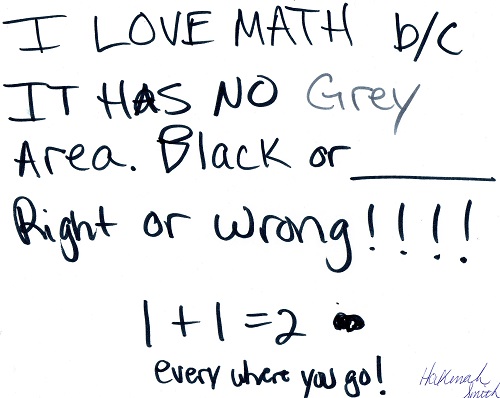 I LOVE MATH b/c
IT HAS NO Grey
Area. Black or ________
Right or wrong!!!!
1 + 1 = 2
every where you go!
Hakimah
Smith